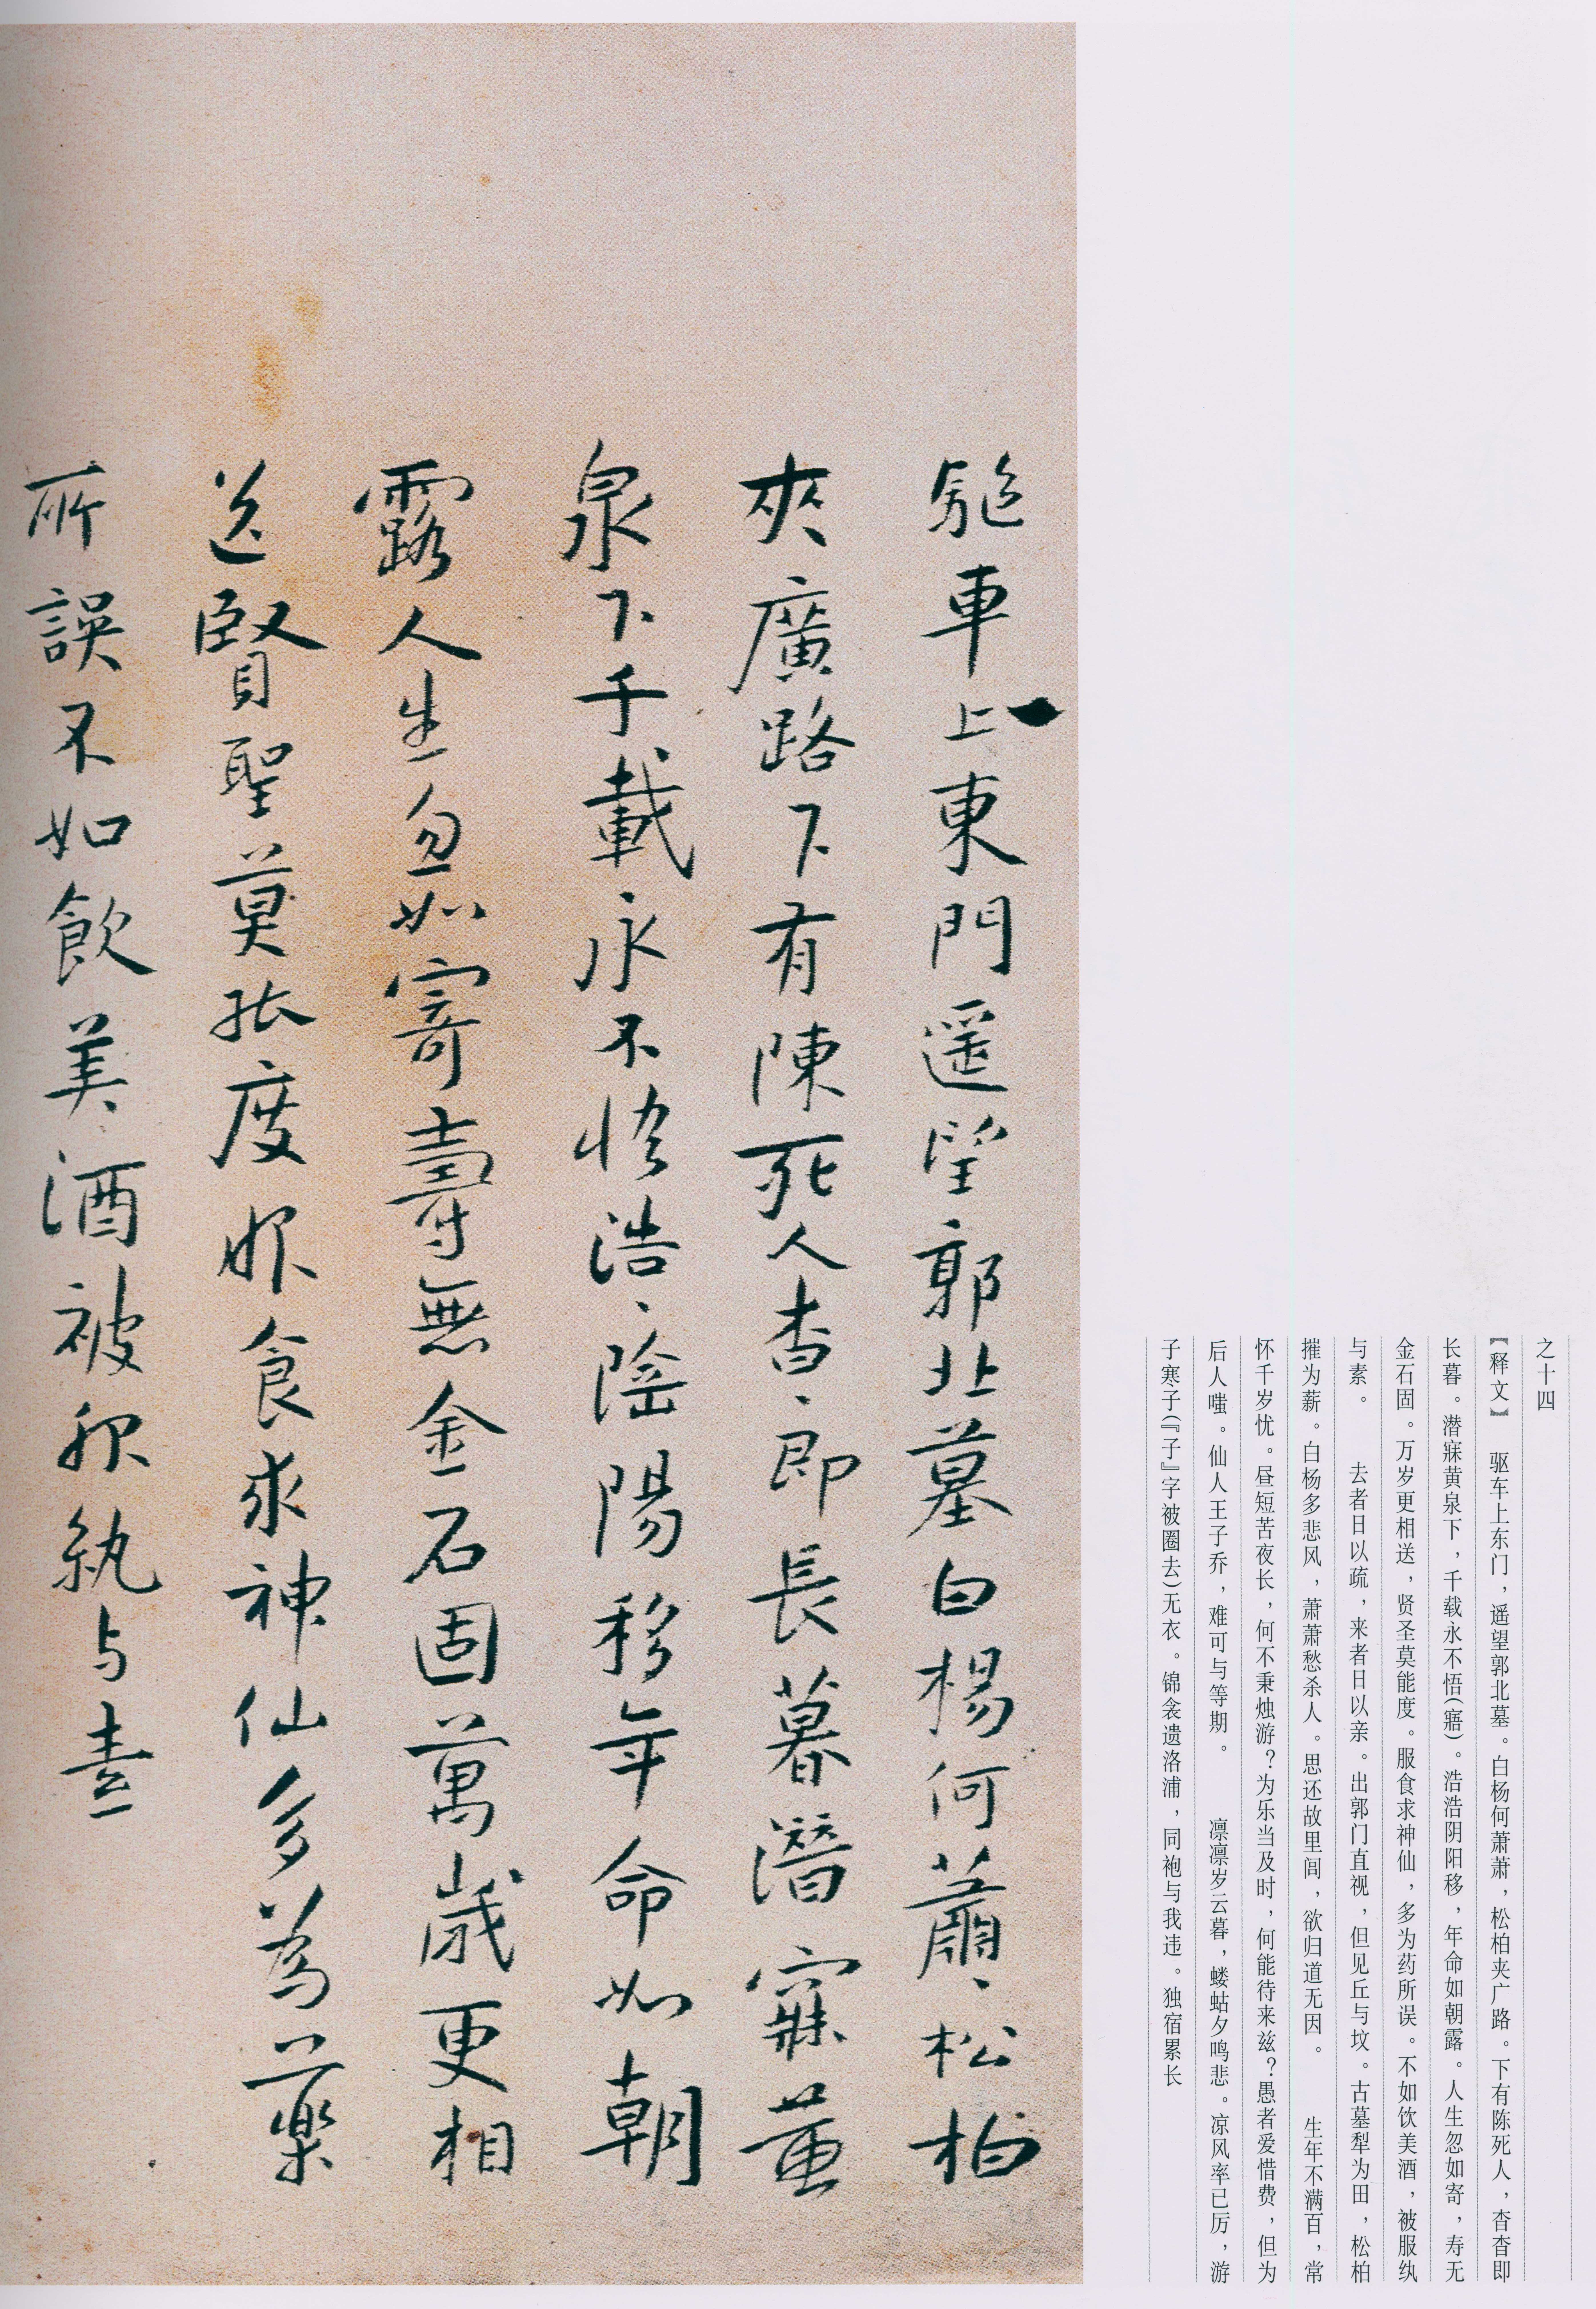 之十四
【释文】 驱车上东门，遥望郭北墓。白杨何萧萧，松柏夹广路。下有陈死人，杳杳即
长暮。潜寐黄泉下，千载永不悟（寤）。浩浩阴阳移，年命如朝露。人生忽如寄，寿无
金石固。万岁更相送，贤圣莫能度。服食求神仙，多为药所误。不如饮美酒，被服纨
与素。 去者日以疏，来者日以亲。出郭门直视，但见丘与坟。古墓犁为田，松柏
摧为薪。白杨多悲风，萧萧愁杀人。思还故里闾，欲归道无因。 生年不满百，常
怀千岁忧。昼短苦夜长，何不秉烛游？为乐当及时，何能待来兹？愚者爱惜费，但为
后人嗤。仙人王子乔，难可与等期。 凛凛岁云暮，蝼蛄夕鸣悲。凉风率已厉，游
子寒子（『子』字被圈去）无衣。锦衾遗洛浦，同袍与我违。独宿累长
驅車上東門遥望郭北墓白楊何蕭、松柏
夾廣路下有陳死人杳、即長暮潛寐黄
泉下千載永不悟浩、陰陽移年命如朝
露人生忽如寄壽無金石固萬歲更相
送賢聖莫能度服食求神仙多為藥
所誤不如飲美酒被服紈与素